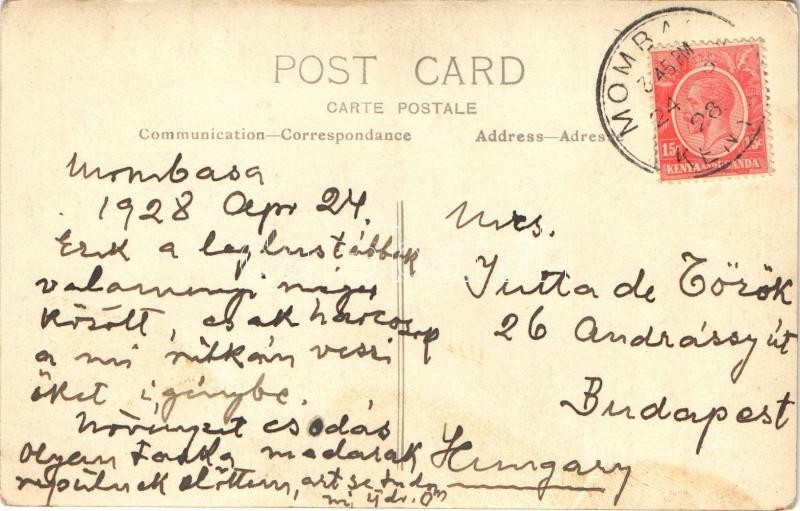 POST CARD
CARTE POSTALE
Communication—Correspondance
Address—Adres
MOMBA
3.45 PM
24
28
KEN
15c
KENYA AND UGANDA
Mombasa
1928 Apr 24.
Ezek a leglustábbak
valamennyi néger
között, csak harcosok
a mi ritkán veszi
őket igénybe.
Növényzet csodás
Olyan tarka madarak
repülnek előttem, azt se tudom
mi
Mrs.
Jutta de Török
26 Andrássy út
Budapest
Hungary